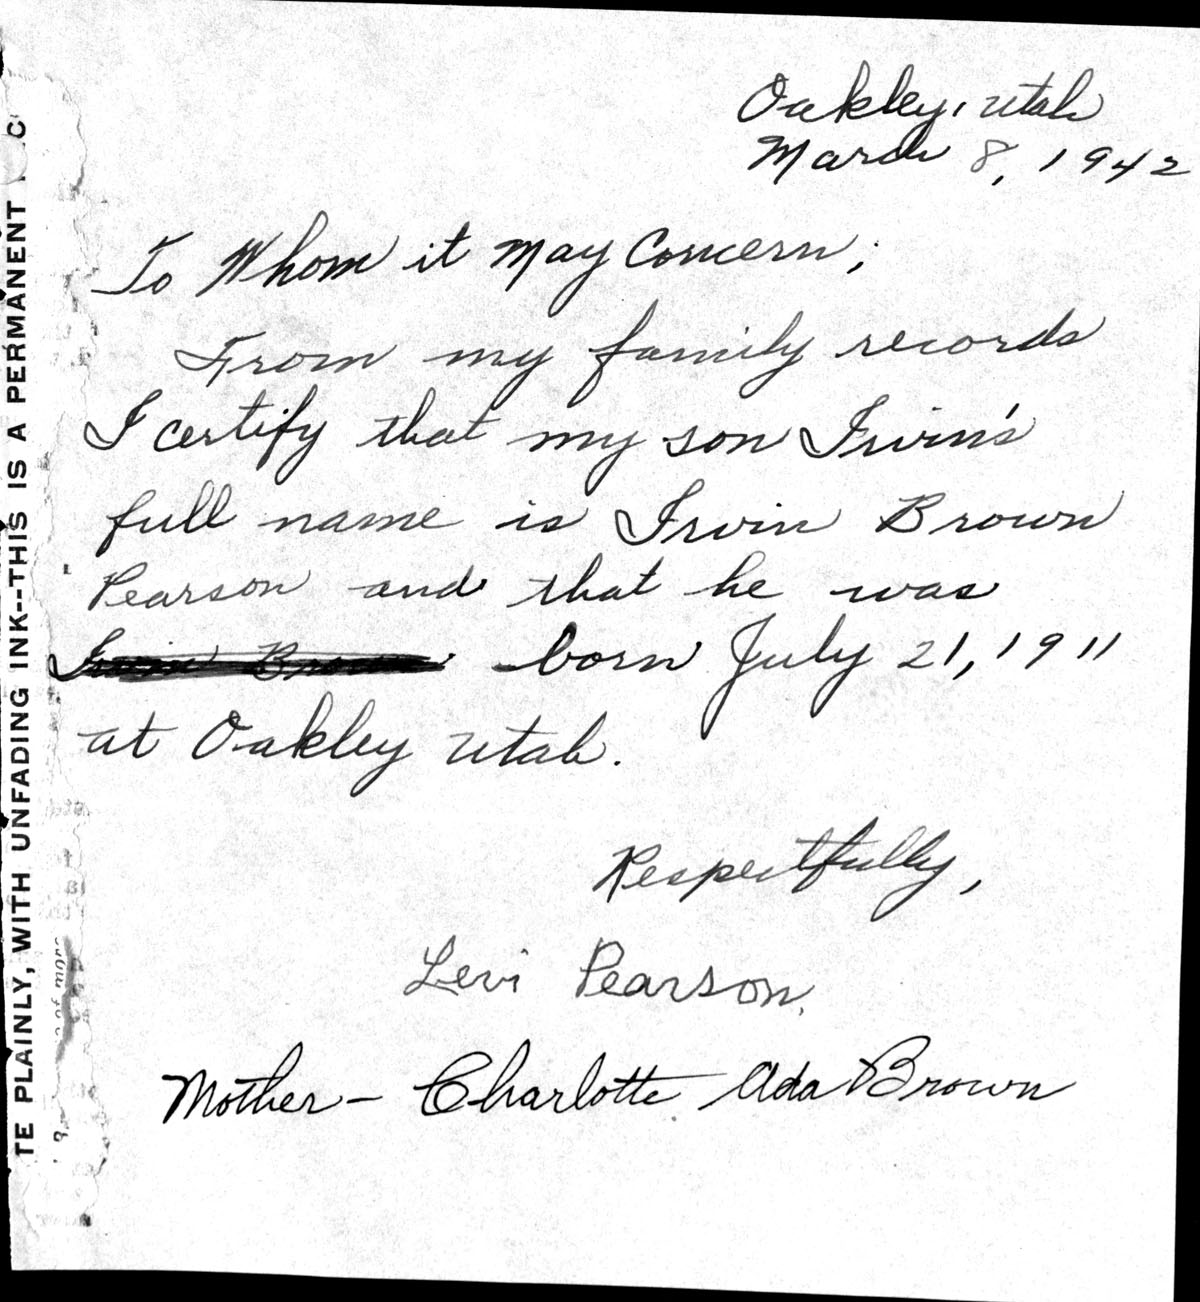 Oakley, Utah
March 8, 1942
To Whom it May Concern;
From my family records
I certify that my son Irvin's
full name is Irvin Brown
Pearson and that he was
Irvin Brown born July 21, 1911
at Oakley Utah.
Respectfully,
Levi Pearson
Mother - Charlotte Ada Brown
TE PLAINLY, WITH UNFADING INK--THIS IS A PERMANENT